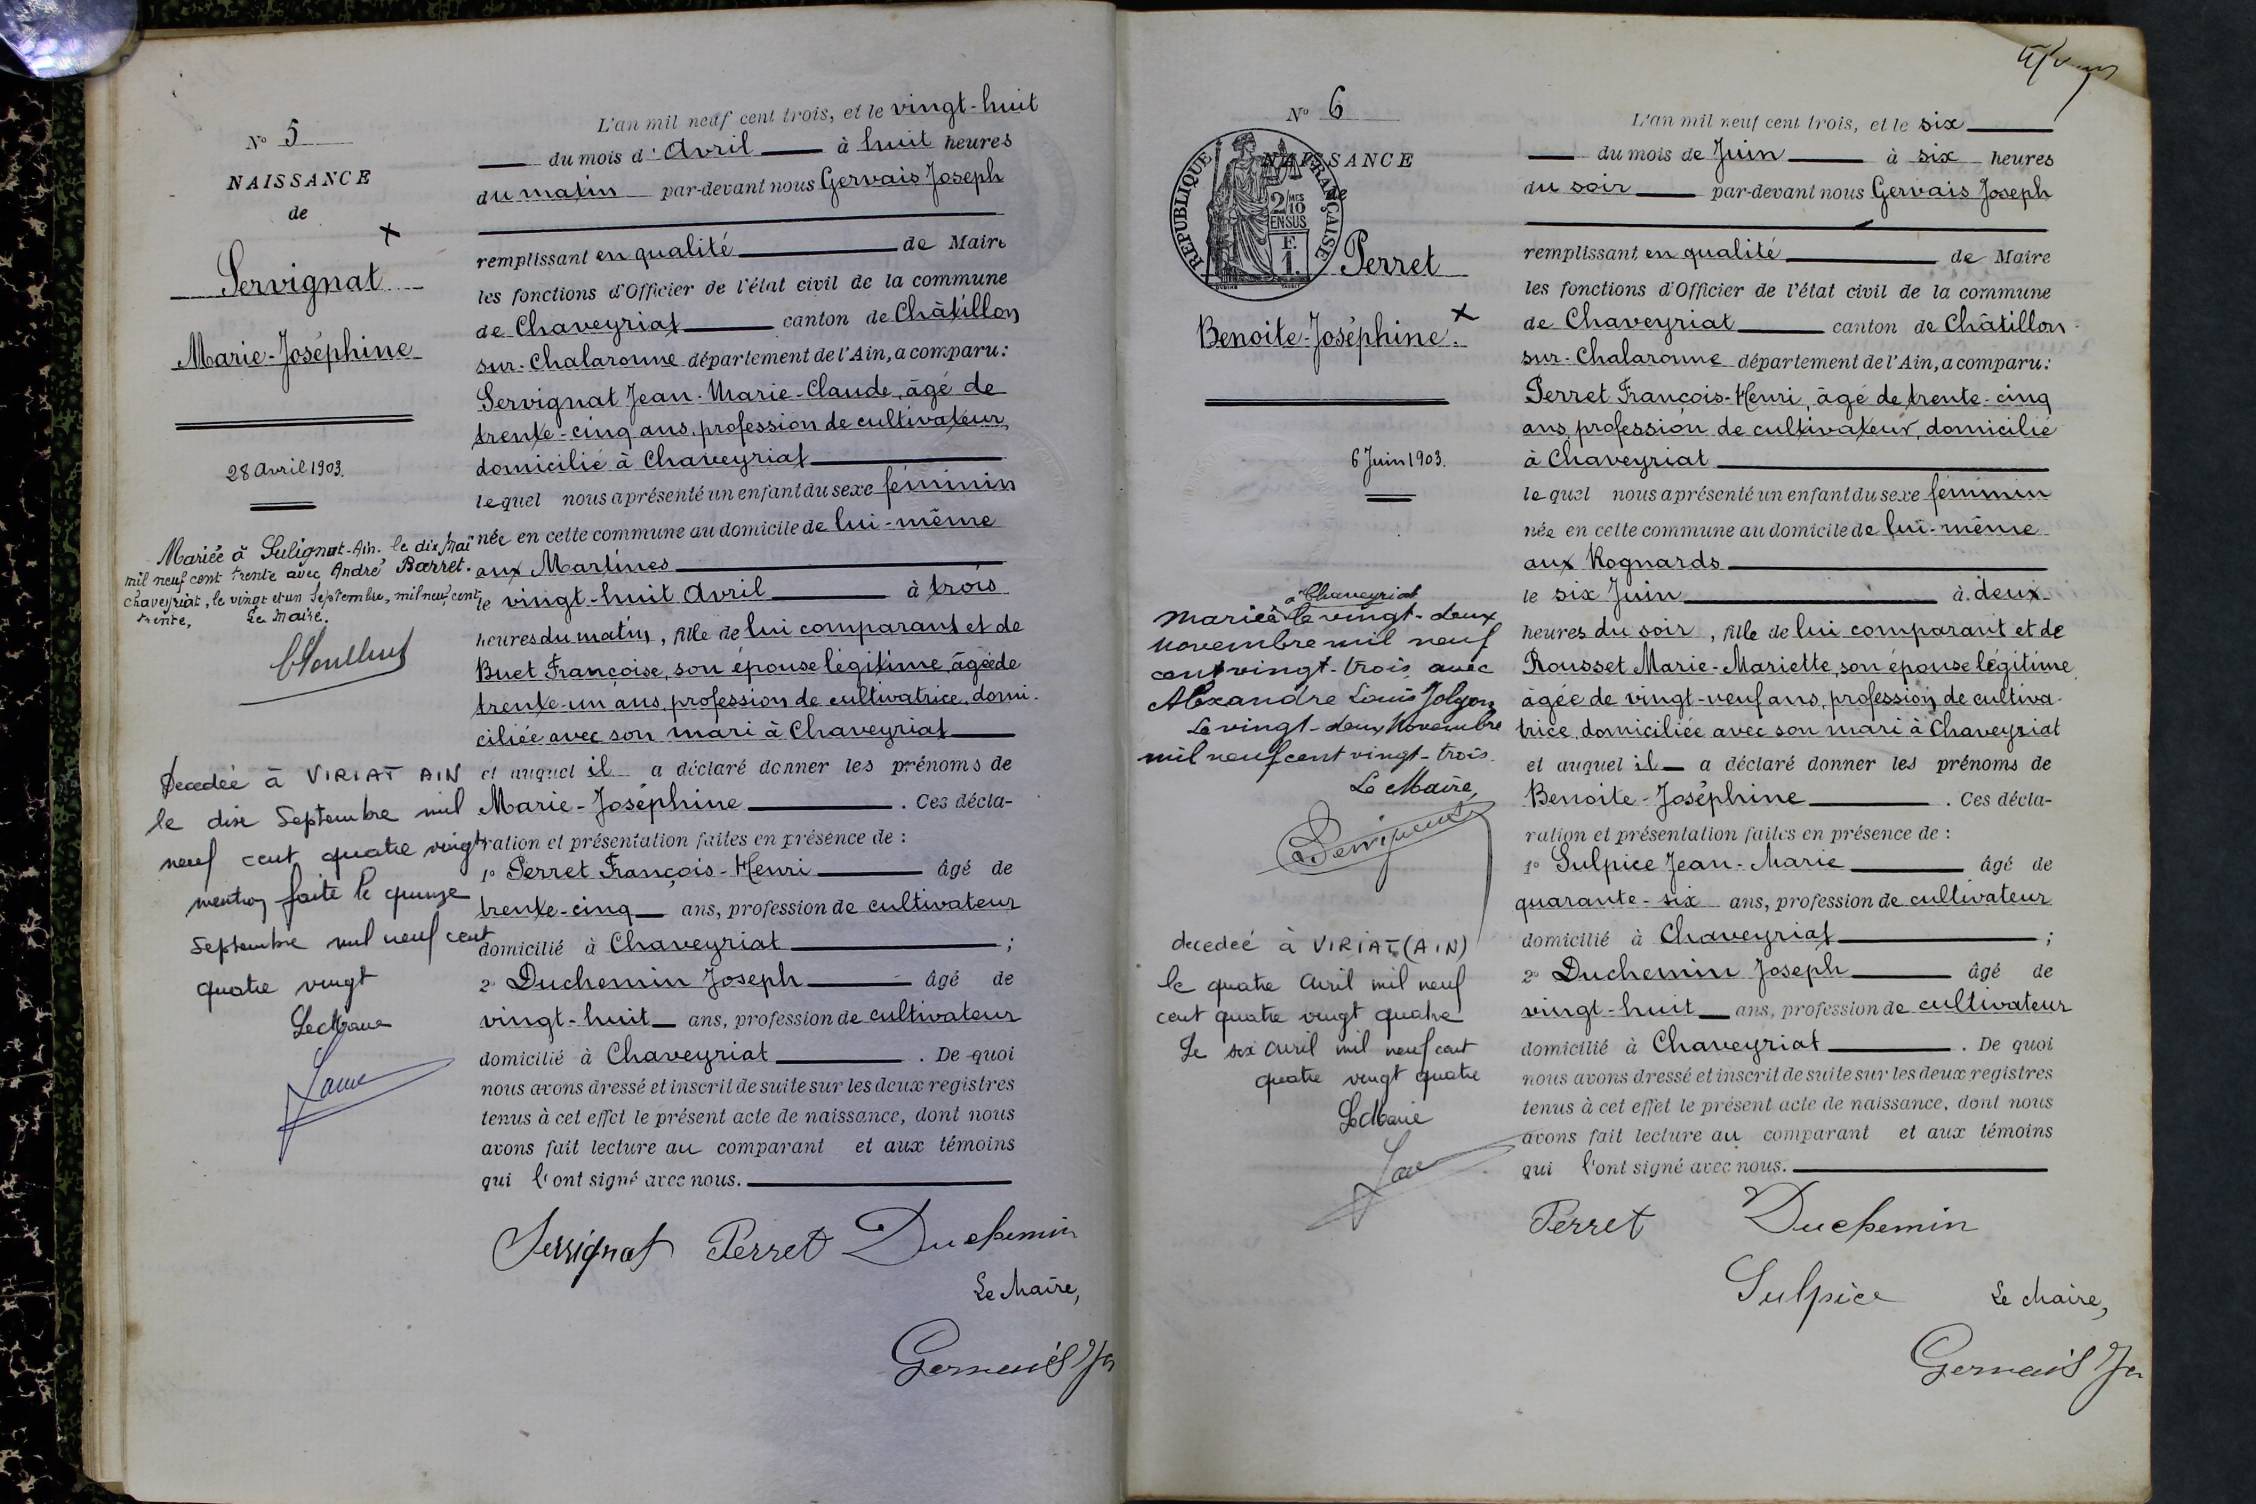 N° 5
NAISSANCE
de
Servignat
Marie-Joséphine
28 Avril 1903.
Mariée à Sulignat-Ain. le dix Mai
mil neuf cent trente avec André Barret.
Chaveyriat, le vingt et un Septembre, mil neuf cent
trente,
Le Maire.
Décédée à VIRIAT AIN
le dix Septembre mil
neuf cent quatre vingt
mention faite le quinze
Septembre mil neuf cent
quatre vingt
Le Maire
L'an mil neuf cent trois, et le vingt-huit
du mois d'Avril à huit heures
du matin par-devant nous Gervais Joseph
remplissant en qualité de Maire
les fonctions d'Officier de l'état civil de la commune
de Chaveyriat canton de Châtillon
sur-Chalaronne département de l'Ain, a comparu:
Servignat Jean-Marie-Claude, âgé de
trente-cinq ans, profession de cultivateur,
domicilié à Chaveyriat
lequel nous a présenté un enfant du sexe féminin
née en cette commune au domicile de lui-même
aux Martines
le vingt-huit Avril à trois
heures du matin, fille de lui comparant et de
Buet Françoise, son épouse légitime, âgée de
trente-un ans, profession de cultivatrice, domi-
ciliée avec son mari à Chaveyriat
et auquel il a déclaré donner les prénoms de
Marie-Joséphine. Ces décla-
ration et présentation faites en présence de :
1° Perret François-Henri âgé de
trente-cinq ans, profession de cultivateur
domicilié à Chaveyriat ;
2° Duchemin Joseph âgé de
vingt-huit ans, profession de cultivateur
domicilié à Chaveyriat. De quoi
nous avons dressé et inscrit de suite sur les deux registres
tenus à cet effet le présent acte de naissance, dont nous
avons fait lecture au comparant et aux témoins
qui l'ont signé avec nous.
Servignat Perret Duchemin
Le Maire,
Gervais
N° 6
NAISSANCE
de
RÉPUBLIQUE FRANÇAISE
2/10 MES
EN SUS
F.
1.
Perret
Benoite-Joséphine.
6 Juin 1903.
à Chaveyriat
Mariée le vingt-deux
novembre mil neuf
cent vingt-trois avec
Alexandre Louis Jolyon
Le vingt-deux Novembre
mil neuf cent vingt-trois.
Le Maire,
décédée à VIRIAT (AIN)
le quatre Avril mil neuf
cent quatre vingt quatre
Le six Avril mil neuf cent
quatre vingt quatre
Le Maire
L'an mil neuf cent trois, et le six
du mois de Juin à six heures
du soir par-devant nous Gervais Joseph
remplissant en qualité de Maire
les fonctions d'Officier de l'état civil de la commune
de Chaveyriat canton de Châtillon-
sur-Chalaronne département de l'Ain, a comparu:
Perret François-Henri, âgé de trente-cinq
ans, profession de cultivateur, domicilié
à Chaveyriat
lequel nous a présenté un enfant du sexe féminin
née en cette commune au domicile de lui-même
aux Rognards
le six Juin à deux
heures du soir, fille de lui comparant et de
Rousset Marie-Mariette, son épouse légitime,
âgée de vingt-neuf ans, profession de cultiva-
trice, domiciliée avec son mari à Chaveyriat
et auquel il a déclaré donner les prénoms de
Benoite-Joséphine. Ces décla-
ration et présentation faites en présence de :
1° Sulpice Jean-Marie âgé de
quarante-six ans, profession de cultivateur
domicilié à Chaveyriat ;
2° Duchemin Joseph âgé de
vingt-huit ans, profession de cultivateur
domicilié à Chaveyriat. De quoi
nous avons dressé et inscrit de suite sur les deux registres
tenus à cet effet le présent acte de naissance, dont nous
avons fait lecture au comparant et aux témoins
qui l'ont signé avec nous.
Perret Duchemin
Sulpice Le Maire,
Gervais